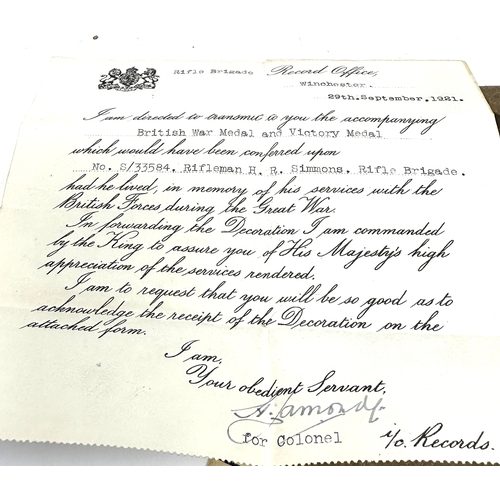 Rifle Brigade Record Office,
Winchester.
29th.September,1921.
I am directed to transmit to you the accompanying
British War Medal and Victory Medal
which would have been conferred upon
No. S/33584, Rifleman H. R. Simmons, Rifle Brigade.
had he lived, in memory of his services with the
British Forces during the Great War.
In forwarding the Decoration I am commanded
by the King to assure you of His Majesty's high
appreciation of the services rendered.
I am to request that you will be so good as to
acknowledge the receipt of the Decoration on the
attached form.
I am,
Your obedient Servant,
for Colonel i/c. Records.